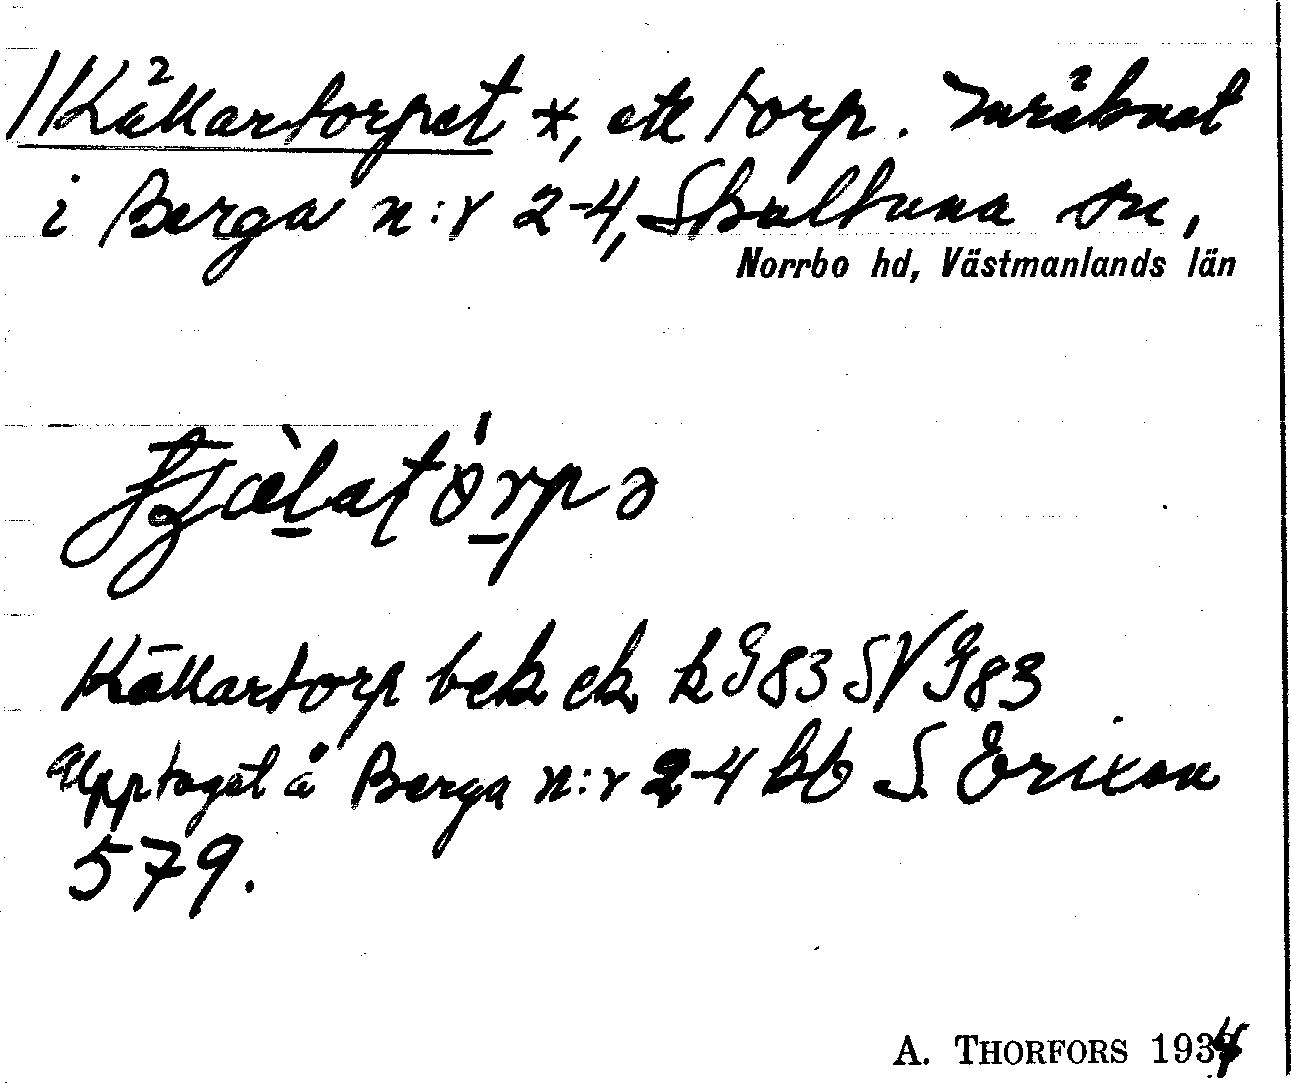 Källartorpet *, ett torp. Inräknat
i Berga n:r 2-4, Skultuna sn,
Norrbo hd, Västmanlands län
Källartorp bek ek k G83 SV G83
Upptaget å Berga n:r 2-4 kb S. Erixon
579.
A. THORFORS 1934